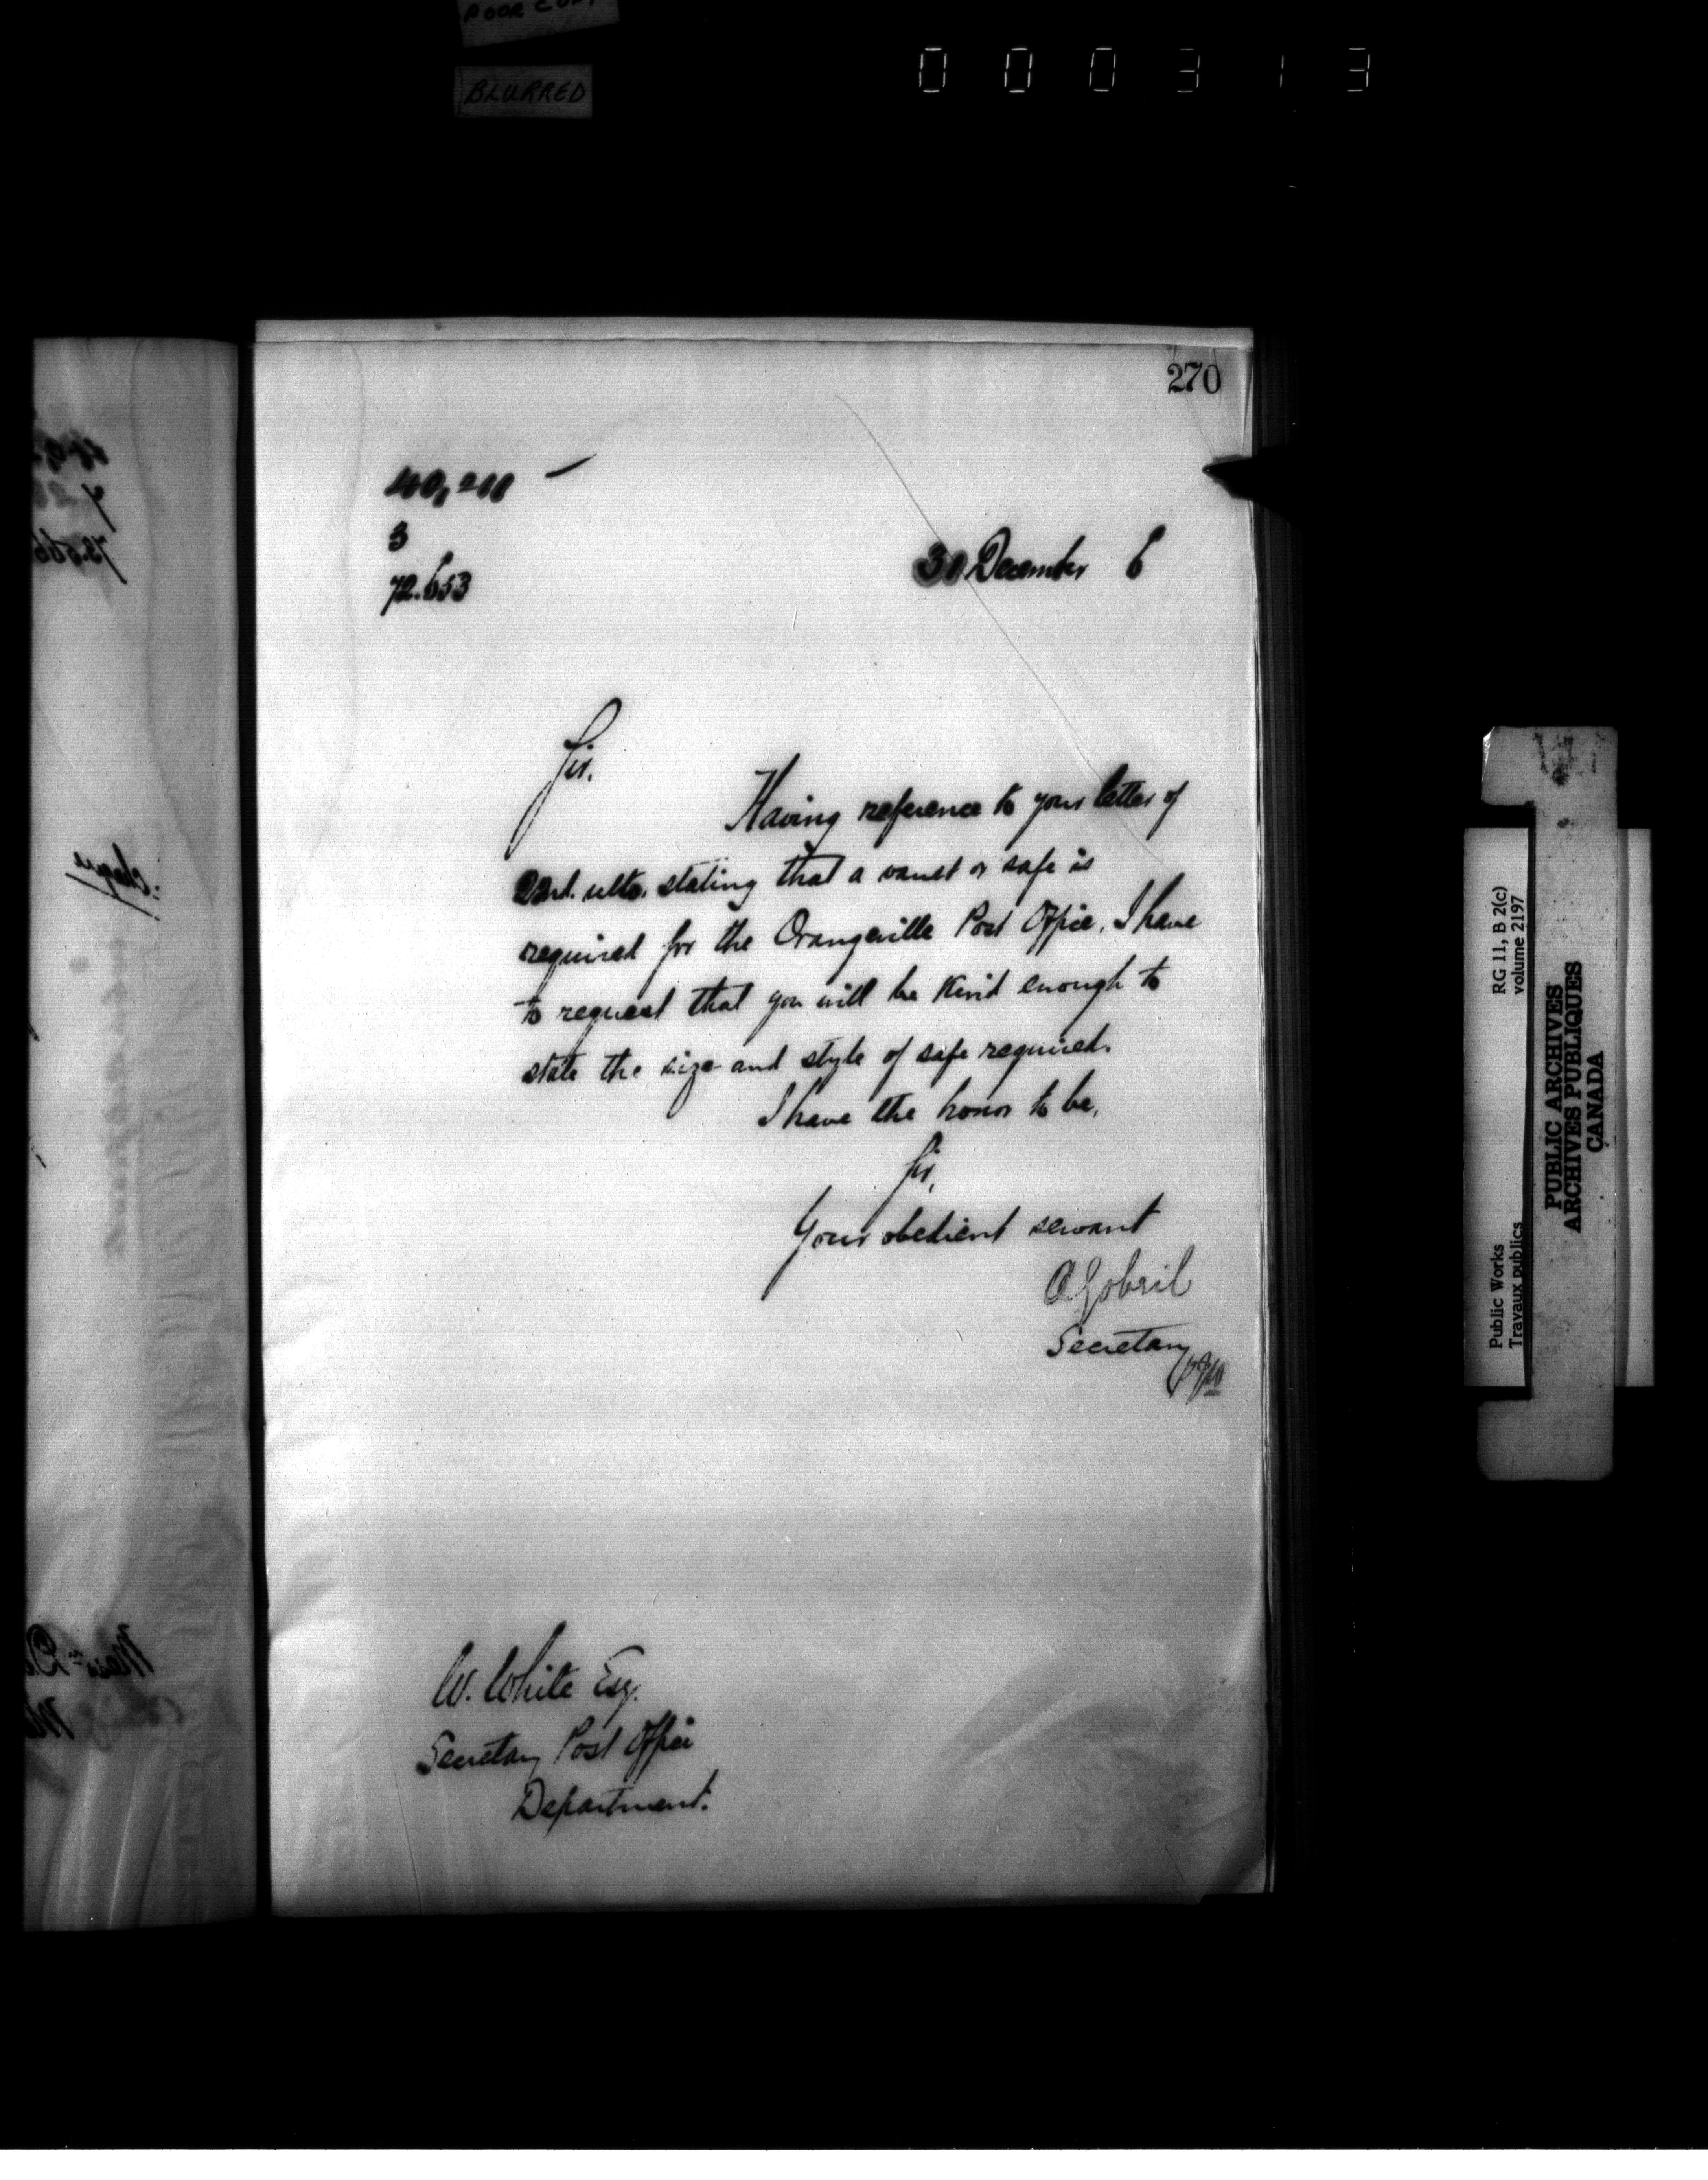 POOR COPY
BLURRED
000313
270
40,211
3
72.653
30 December 6
Sir,
Having reference to your letter of
22nd. ulto. stating that a vault or safe is
required for the Orangeville Post Office, I have
to request that you will be kind enough to
state the size and style of safe required.
I have the honor to be,
Sir,
Your obedient servant
A Gobeil
Secretary
W. White Esq.
Secretary Post Office
Department.
RG 11, B 2(c)
volume 2197
Public Works
Travaux publics
PUBLIC ARCHIVES
ARCHIVES PUBLIQUES
CANADA